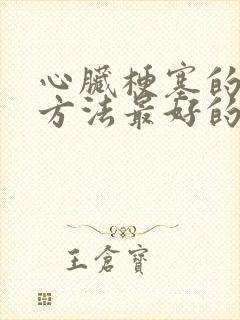 心臟梗塞的
方法最好的
王倉寶